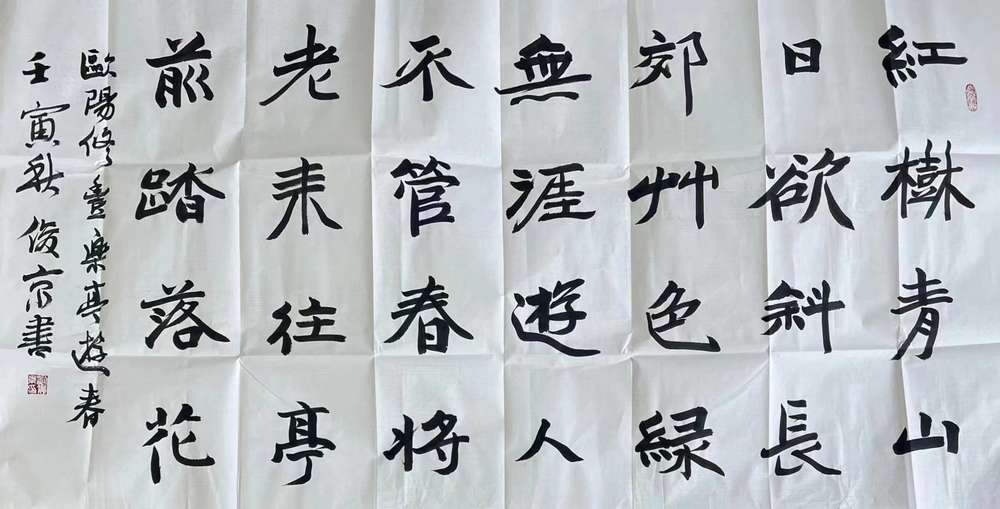 紅樹青山
日欲斜長
郊艸色緑
無涯遊人
不管春將
老来往亭
前踏落花
歐陽修豊樂亭遊春
壬寅秋俊京書